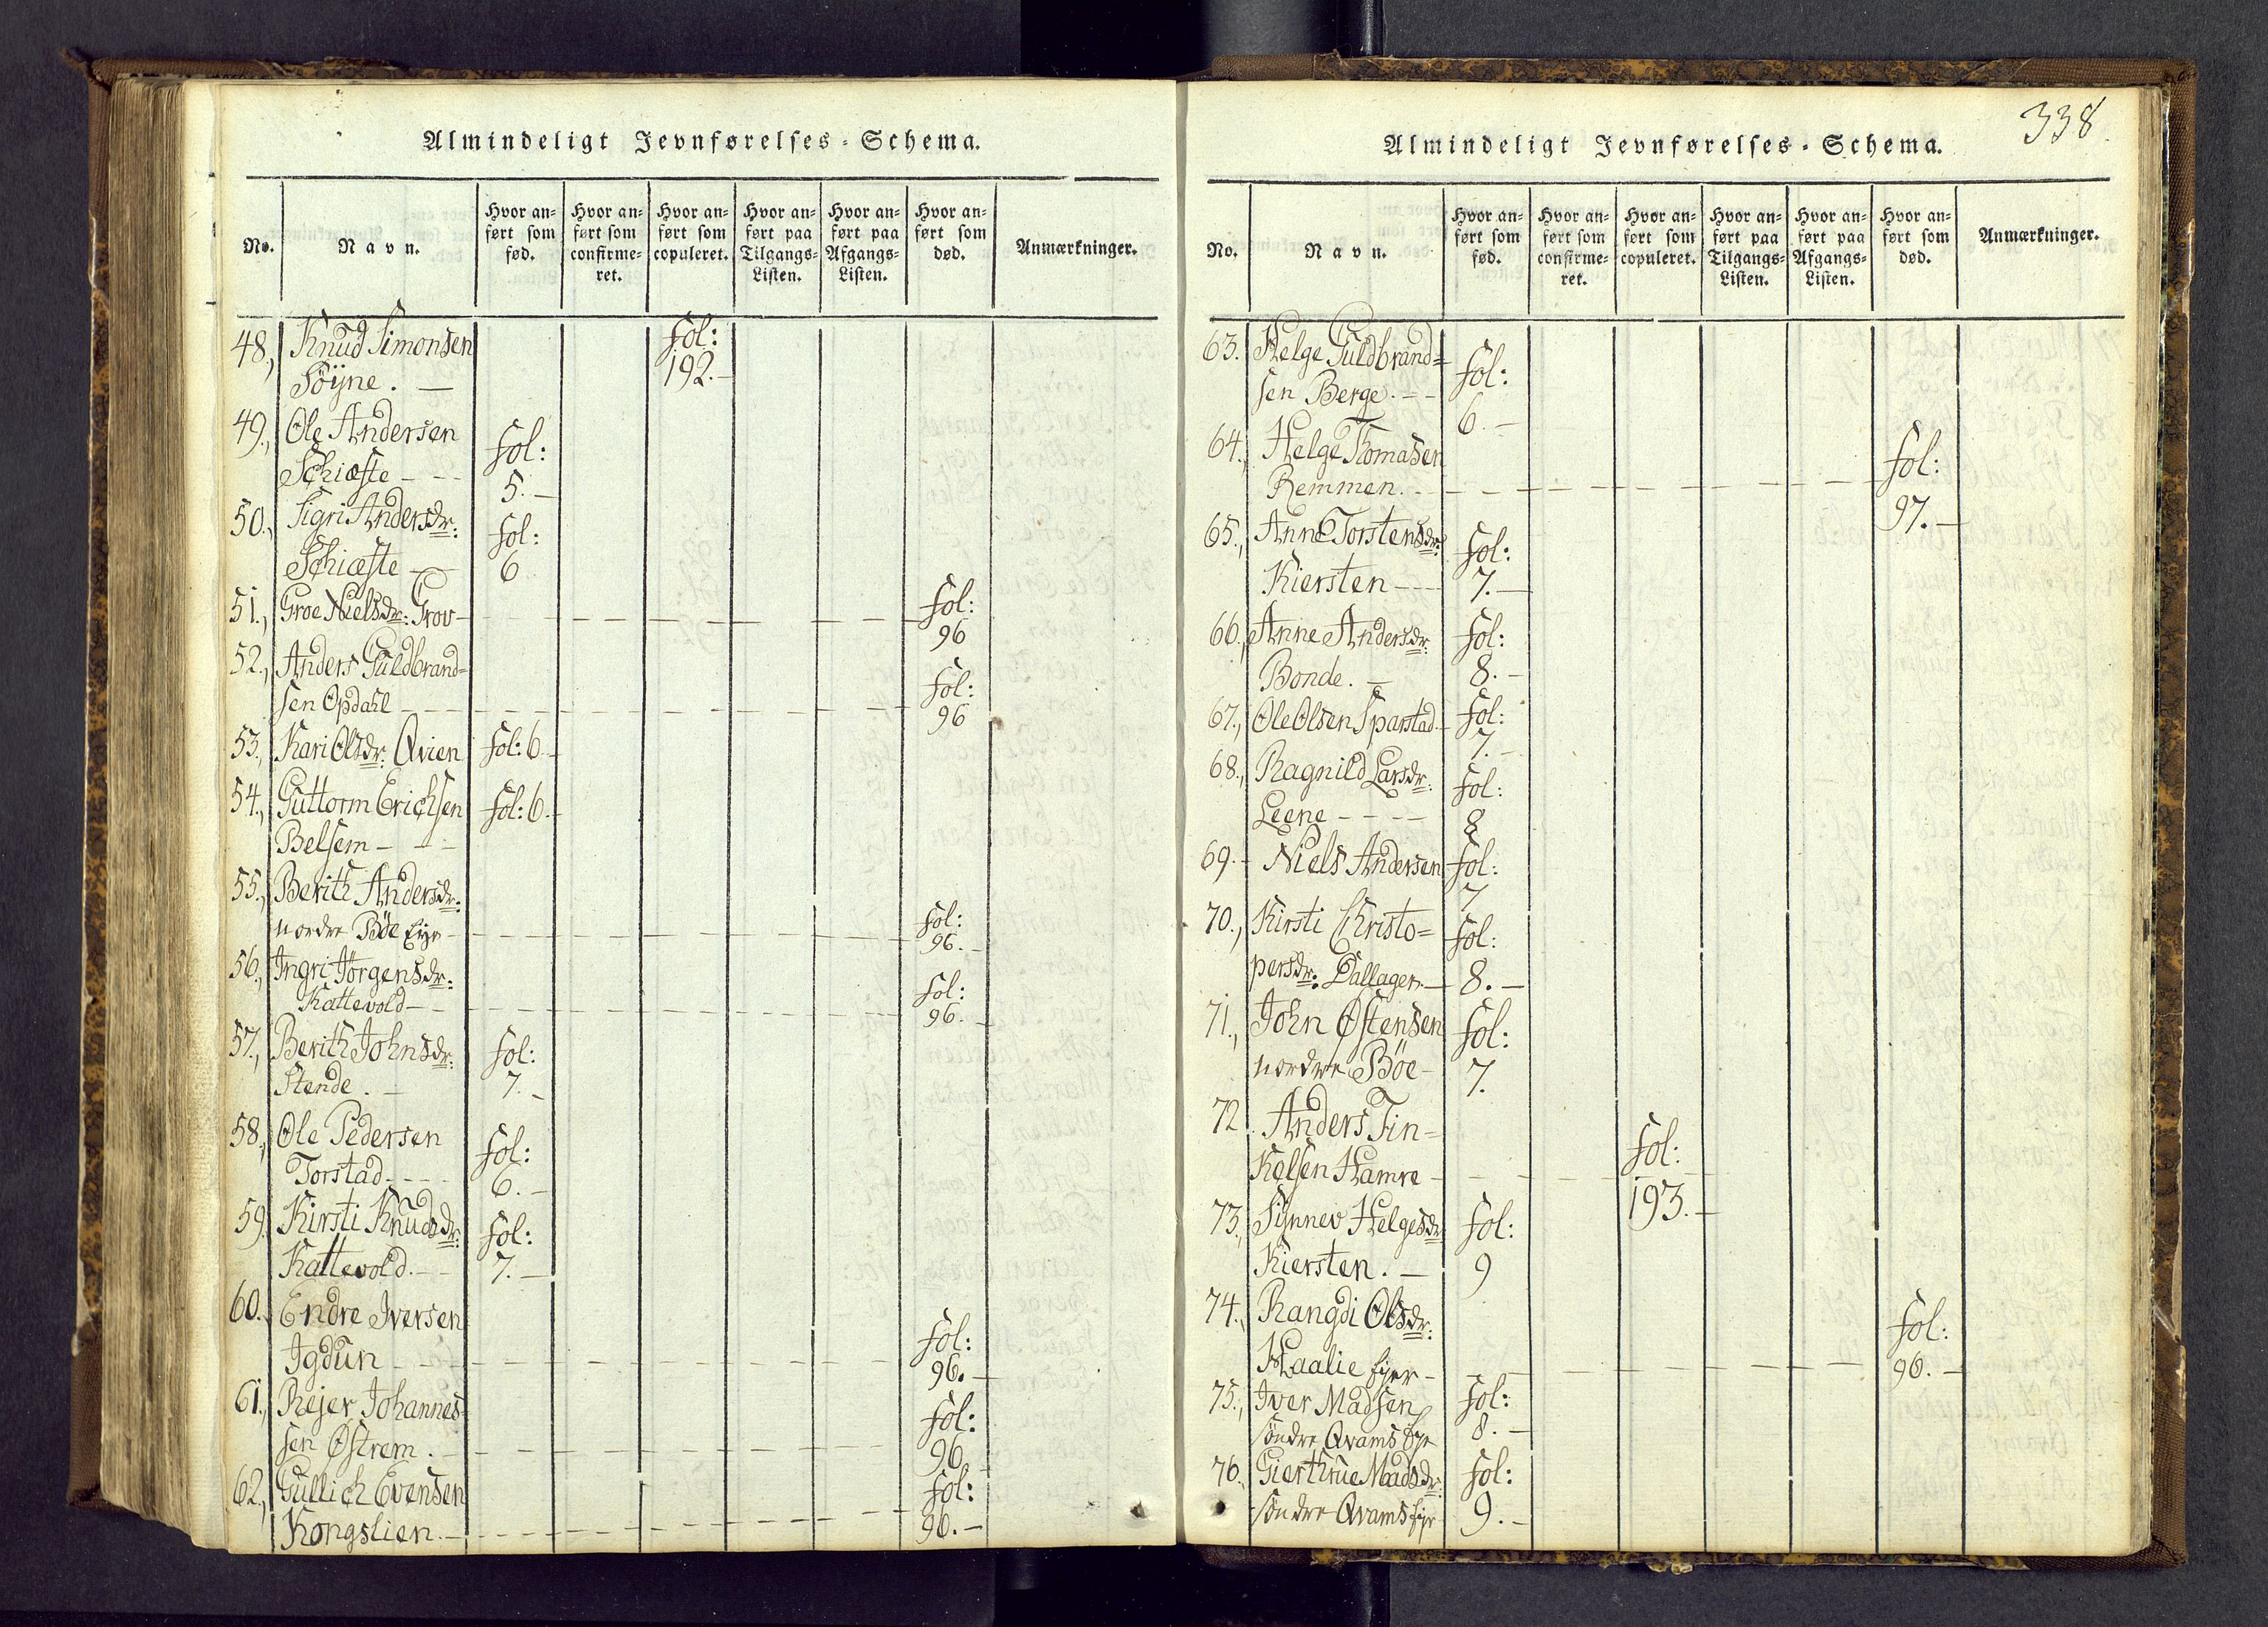 Almindeligt Jevnførelses-Schema.
No. Navn. Hvor anført som fød. Hvor anført som confirmeret. Hvor anført som copuleret. Hvor anført paa Tilgangs-Listen. Hvor anført paa Afgangs-Listen. Hvor anført som død. Anmærkninger.
48., Knud Simonsen fol:
Söyne. — 192.-
49., Ole Andersen fol:
Schiæste - - - 5.-
50., Sigri Andersdr: fol:
Schiæste — 6
51., Groe Nielsdr: Grov - fol:
96
52., Anders Guldbrand= fol:
sen Opdahl - - 96
53., Kari Olsdr: Qvien fol: 6.-
54., Guttorm Erichsen fol: 6.-
Belsem - - -
55., Berith Andersdr: fol:
nordre Böe Eye - 96.-
56., Ingri Jörgensdr: fol:
Kattevold - - 96.-
57., Berith Johnsdr: fol:
Stende. - 7.-
58., Ole Pedersen fol:
Torstad - - - 6.-
59. Kirsti Knudsdr: fol:
Kattevold. - - 7.-
60. Endre Iversen fol:
Igdun - - 96.-
61., Rejer Johannes= fol:
sen Østrem. - 96
62., Gullich Evensen fol:
Kongslien. - 96.-
338
Almindeligt Jevnførelses-Schema.
No. Navn. Hvor anført som fød. Hvor anført som confirmeret. Hvor anført som copuleret. Hvor anført paa Tilgangs-Listen. Hvor anført paa Afgangs-Listen. Hvor anført som død. Anmærkninger.
63. Helge Guldbrand= fol:
sen Berge. - - 6.-
64., Helge Thomasen fol:
Remmen. - 97.-
65., Anne Torstensdr: fol:
Kiersten - - - 7.-
66., Anne Andersdr: fol:
Bonde. - 8.-
67., Ole Olsen Sparstad - fol:
7.-
68., Ragnild Larsdr: fol:
Leene - - - - 8
69.- Niels Andersen fol:
7
70., Kirsti Christo= fol:
persdr: Dallagen. - 8.-
71., John Østensen fol:
nordre Böe - 7.
72. Anders Fin= fol:
kelsen Hamre - 193.-
73., Synnev Helgesdr: fol:
Kiersten. - 9
74., Rangdi Olsdr: fol:
Haalie Eyer - 96.-
75., Iver Madsen fol:
söndre Qvams Eye 8.-
76., Gierthrue Madsdr: fol:
söndre Qvams Eye 9.-